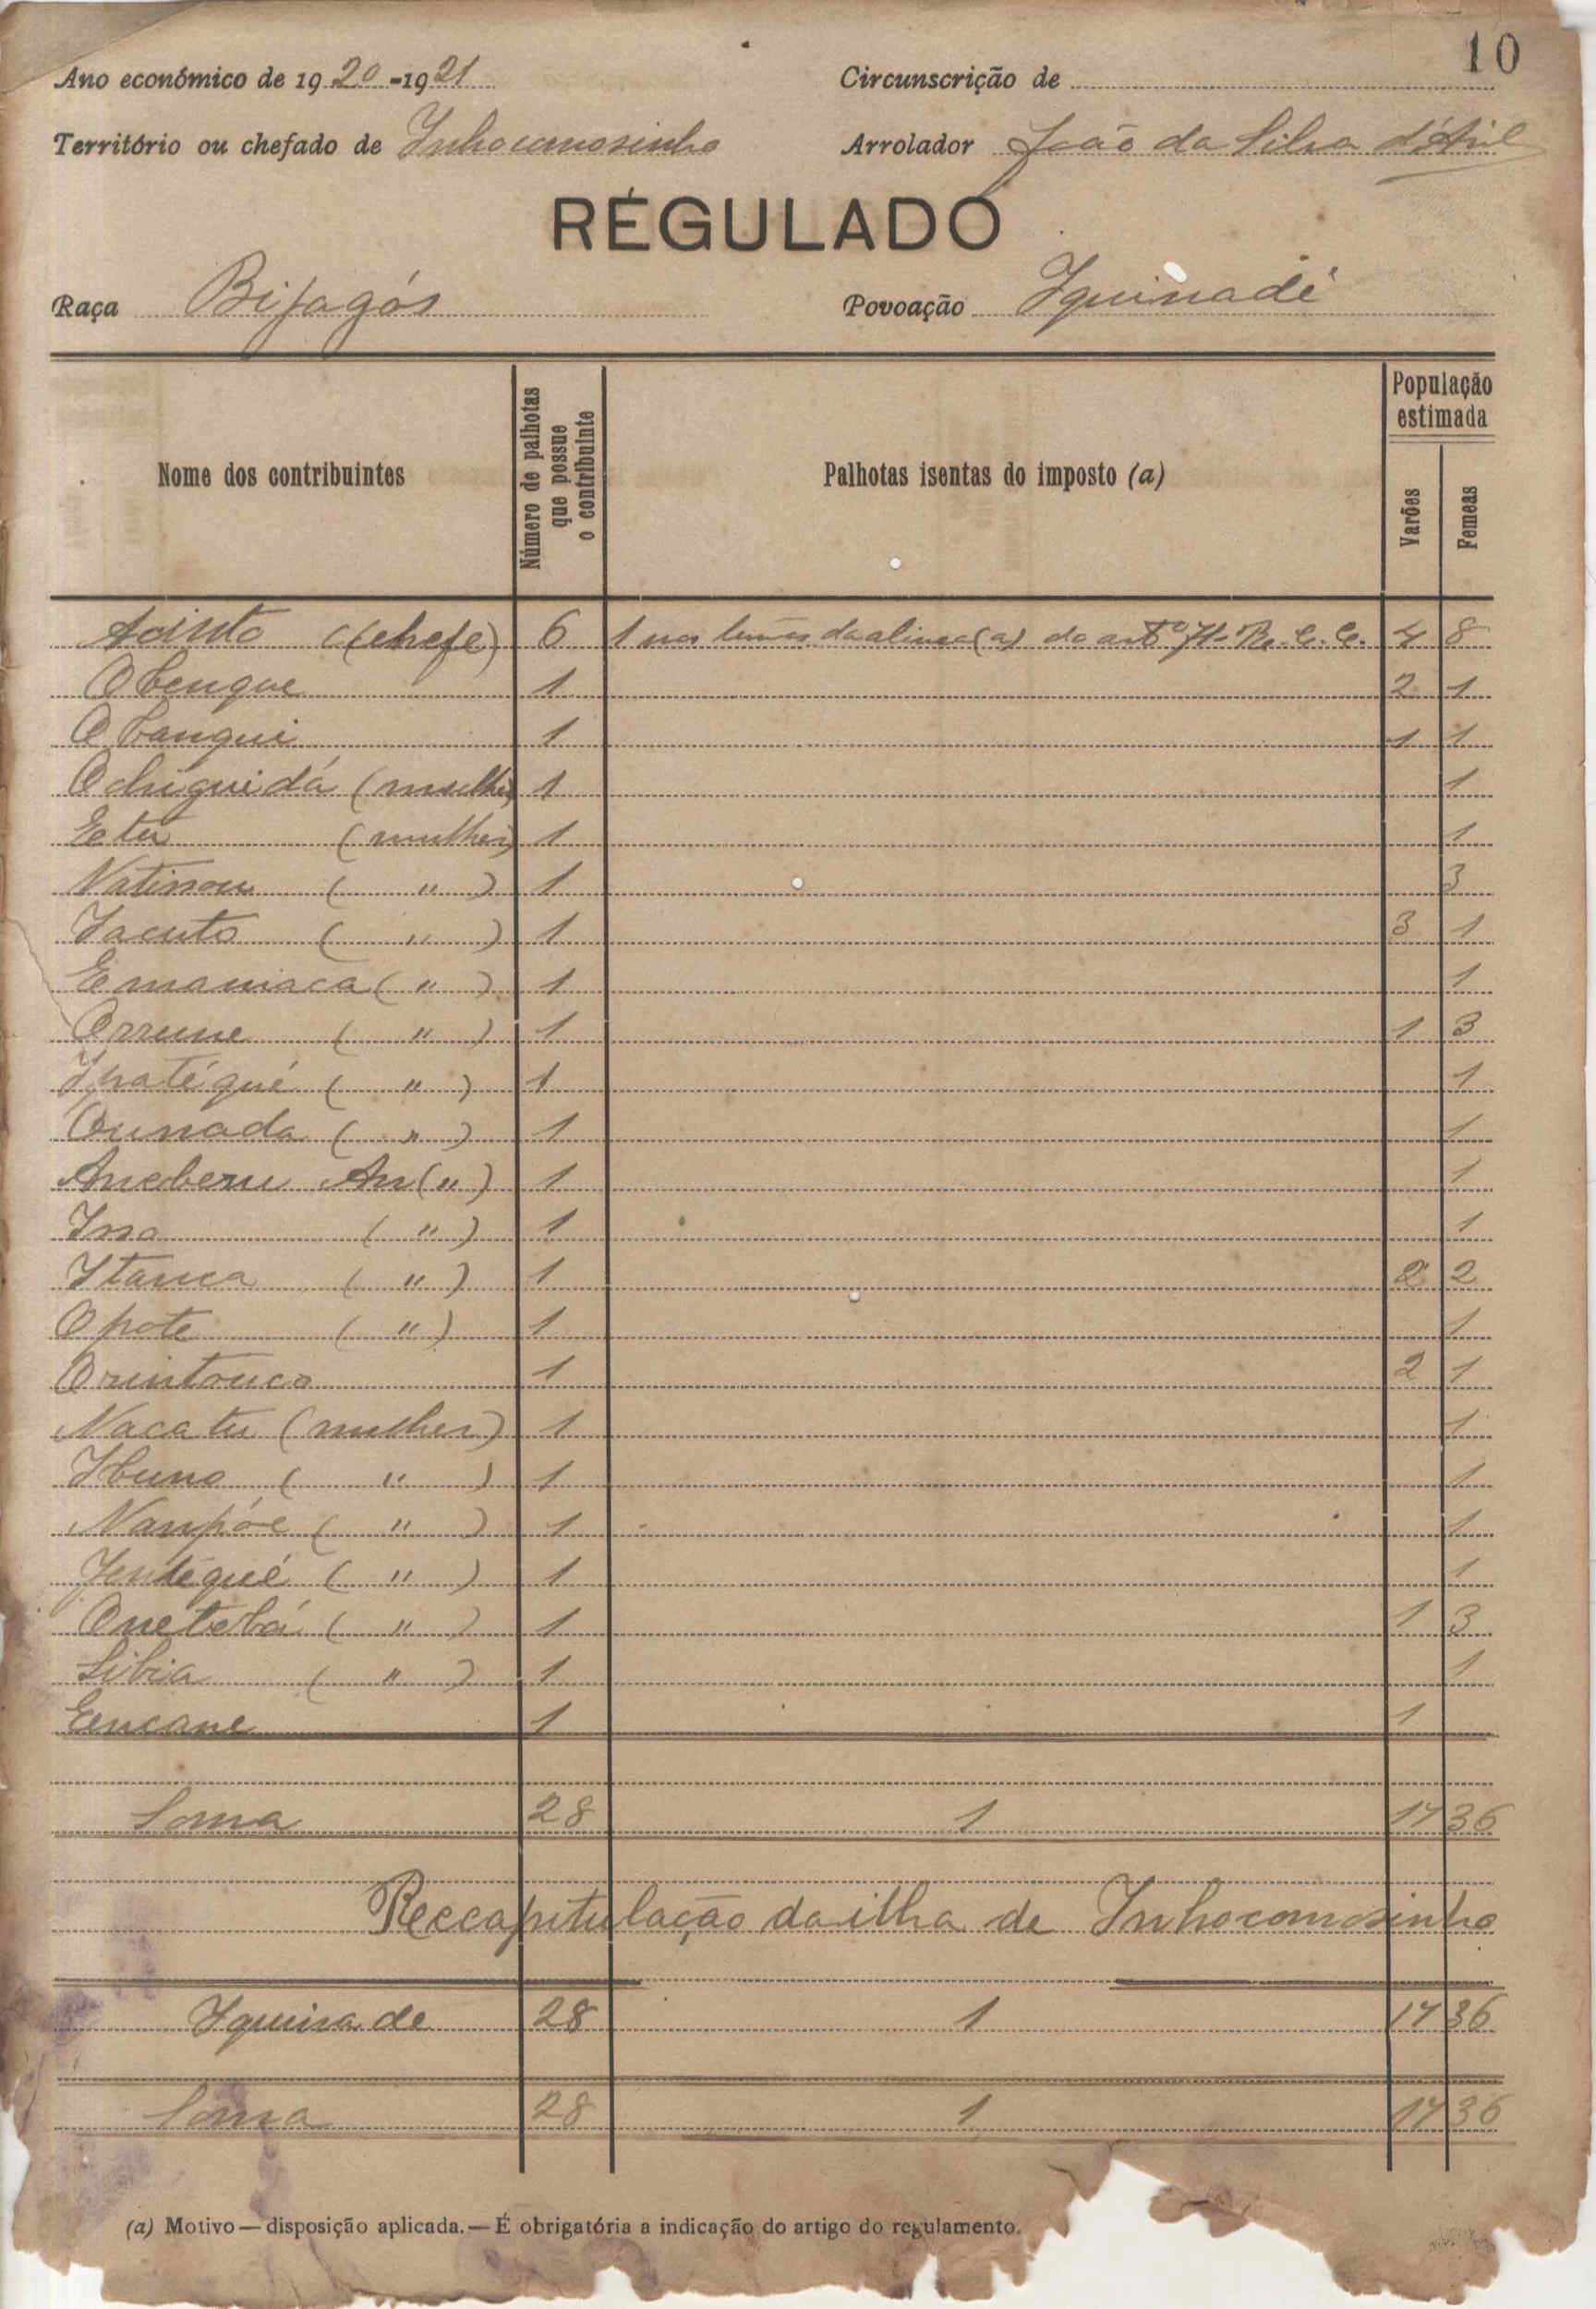 10
Ano económico de 1920-1921 Circunscrição de
Território ou chefado de Inhocomosinho Arrolador João da Silva
RÉGULADO
Raça Bijagós Povoação Iquinadé
Nome dos contribuintes Número de palhotas que possue o contribuinte Palhotas isentas do imposto (a) População estimada Varões Femeas
(chefe) 6 1 nos termos da alinea (a) do artº R. C. C. 4 8
Obenque 1 2 1
Obanqui 1 1 1
Ochiguidá (mulher) 1 1
Eetu (mulher) 1 1
( " ) 1 3
Jacuto ( " ) 1 3 1
Emaniaca ( " ) 1 1
Orrune ( " ) 1 1 3
Ipatéqué ( " ) 1 1
Ounada ( " ) 1 1
Aneberu An ( " ) 1 1
( " ) 1 1
Itanca ( " ) 1 2 2
Opote ( " ) 1 1
Orintouco 1 2 1
Nacatu (mulher) 1 1
Ibuno ( " ) 1 1
Nanpóe ( " ) 1 1
( " ) 1 1
Onetobá ( " ) 1 1 3
Libia ( " ) 1 1
Eencane 1 1
Soma 28 1 17 36
Reccapitulação da ilha de Inhocomosinho
Iquinade 28 1 17 36
Soma 28 1 17 36
(a) Motivo — disposição aplicada. — É obrigatória a indicação do artigo do regulamento.